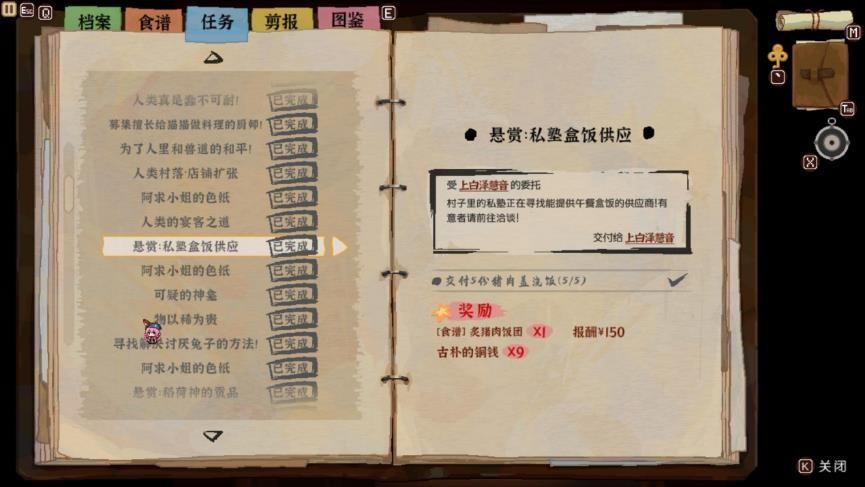 Esc Q 档案 食谱 任务 剪报 图鉴 E
M
Tab
X
人类真是蠢不可耐! 已完成
募集擅长给猫猫做料理的厨师! 已完成
为了人里和兽道的和平! 已完成
人类村落·店铺扩张 已完成
阿求小姐的色纸 已完成
人类的宴客之道 已完成
悬赏:私塾盒饭供应 已完成
阿求小姐的色纸 已完成
可疑的神龛 已完成
物以稀为贵 已完成
寻找解决讨厌兔子的方法! 已完成
阿求小姐的色纸 已完成
悬赏:稻荷神的贡品 已完成
悬赏:私塾盒饭供应
受 上白泽慧音 的委托
村子里的私塾正在寻找能提供午餐盒饭的供应商!有
意者请前往洽谈!
交付给 上白泽慧音
交付5份猪肉盖浇饭(5/5)
奖励
[食谱] 炙猪肉饭团 X1 报酬¥150
古朴的铜钱 X9
K 关闭